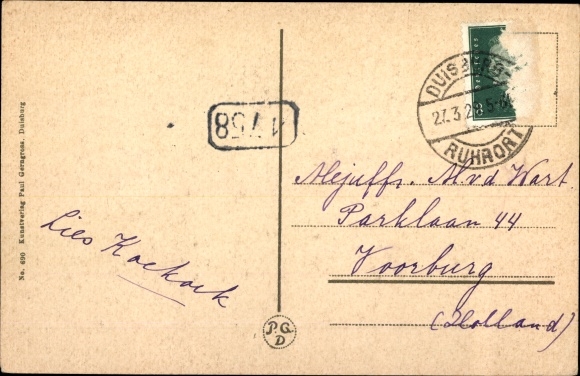 No. 690 Kunstverlag Paul Gerngross, Duisburg
DUISBURG-
27.3.28.5-6
RUHRORT
1758
Mejuffr. M v d Wart.
Parklaan 44
Voorburg
(Holland)
Lies Koekoek
P.G.
D